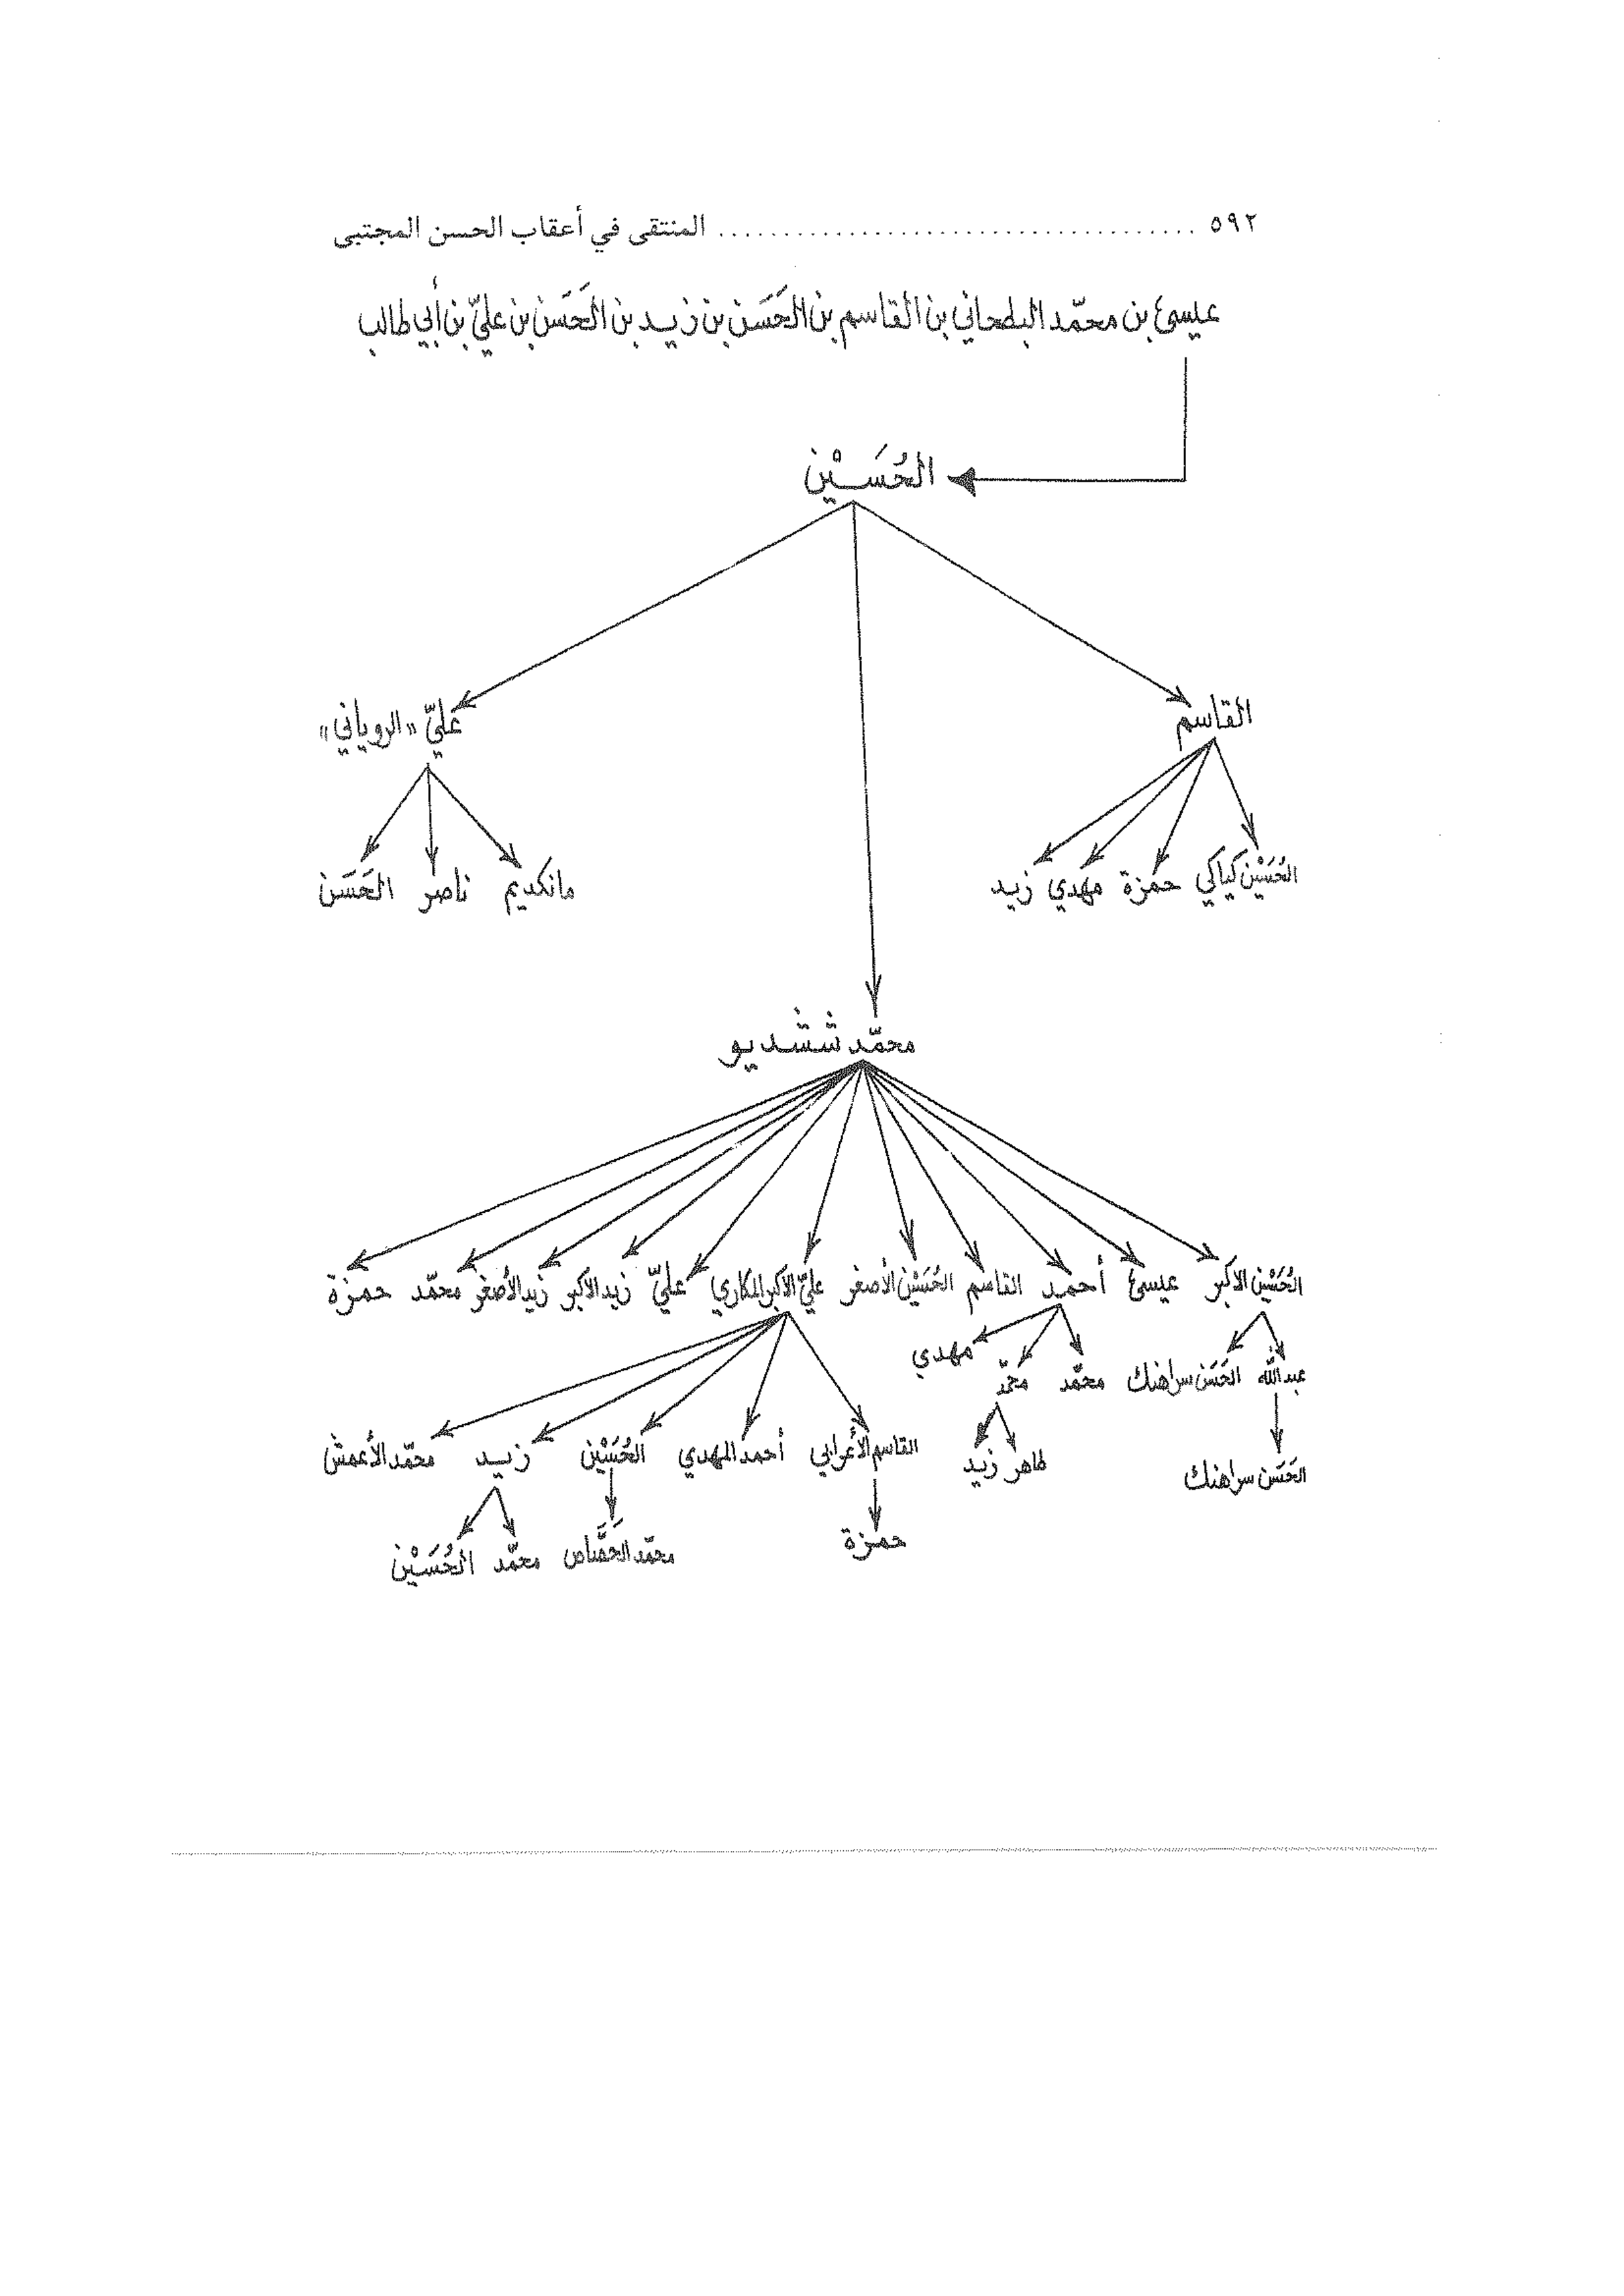 ٥٩٢ ..................................... المنتقى في أعقاب الحسن المجتبى
عيسىٰ بن محمّد البطحاني بن القاسم بن الحَسَن بن زيد بن الحَسَن بن عليّ بن أبي طالب
الحُسَيْن
القاسم عليّ «الروياني»
الحُسَيْن كياكي حمزة مهدي زيد مانكديم ناصر الحَسَن
محمّد ششديو
الحُسَيْن الأكبر عيسىٰ أحمد القاسم الحُسَيْن الأصغر عليّ الأكبر المكاري عليّ زيد الأكبر زيد الأصغر محمّد حمزة
عبد الله الحَسَن سراهنك محمّد محمّد مهدي
الحَسَن سراهنك طاهر زيد القاسم الأعرابي أحمد المهدي الحُسَيْن زيد محمّد الأعمش
حمزة محمّد محمّد الحُسَيْن